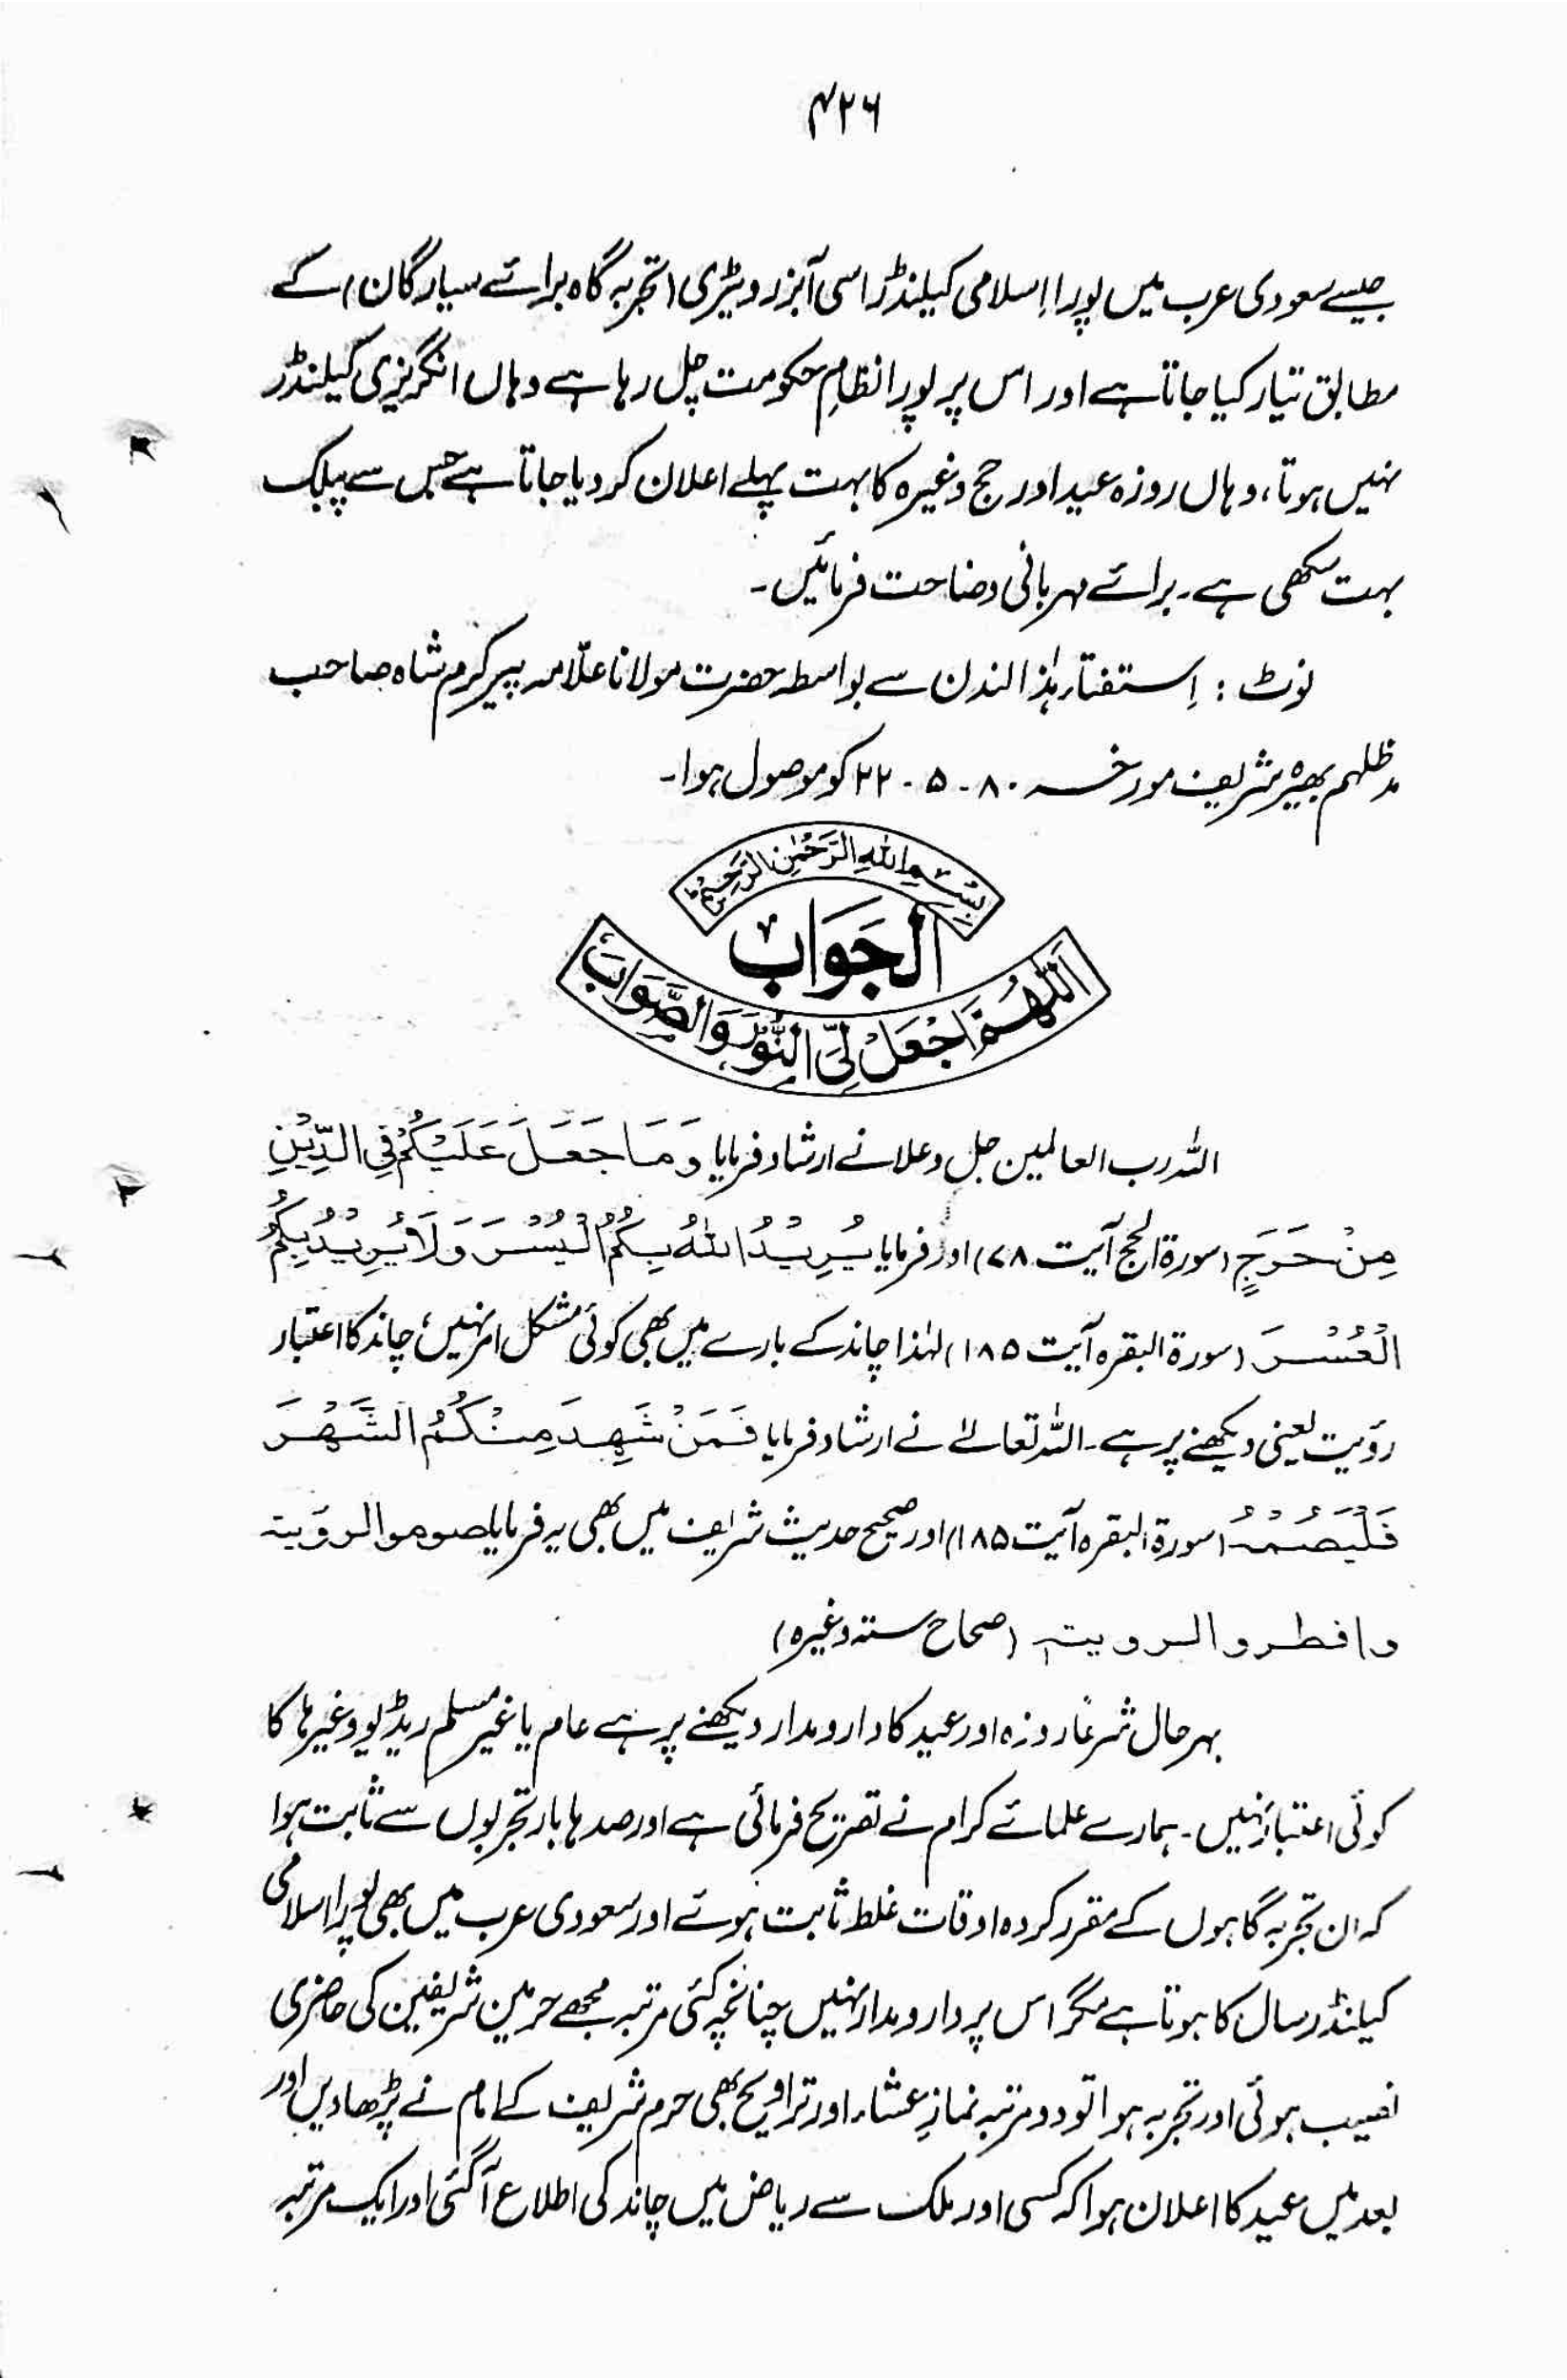 ۴۲۶
جیسے سعودی عرب میں پورا اسلامی کیلنڈر اسی آبزرویٹری (تجربہ گاہ برائے سیارگان) کے
مطابق تیار کیا جاتا ہے اور اس پر پورا نظامِ حکومت چل رہا ہے وہاں انگریزی کیلنڈر
نہیں ہوتا، وہاں روزہ عید اور حج وغیرہ کا بہت پہلے اعلان کر دیا جاتا ہے جس سے پبلک
بہت سکھی ہے۔ برائے مہربانی وضاحت فرمائیں۔
نوٹ : اِستفتاء ہٰذا لندن سے بواسطہ حضرت مولانا علّامہ پیر کرم شاہ صاحب
مدظلہم بھیرہ شریف مورخہ ۸۰-۵-۲۲ کو موصول ہوا۔
بِسْمِ اللهِ الرَّحْمٰنِ الرَّحِيْمِ
اَلجَوَابُ
اَللّٰهُمَّ اجْعَلْ لِّيَ النُّوْرَ وَالصَّوَابَ
اللہ رب العالمین جل وعلا نے ارشاد فرمایا وَمَا جَعَلَ عَلَيْكُمْ فِي الدِّيْنِ
مِنْ حَرَجٍ (سورۃ الحج آیت ۷۸) اور فرمایا يُرِيْدُ اللهُ بِكُمُ الْيُسْرَ وَلَا يُرِيْدُ بِكُمُ
الْعُسْرَ (سورۃ البقرہ آیت ۱۸۵) لہٰذا چاند کے بارے میں بھی کوئی مشکل امر نہیں؛ چاند کا اعتبار
رؤیت یعنی دیکھنے پر ہے۔ اللہ تعالےٰ نے ارشاد فرمایا فَمَنْ شَهِدَ مِنْكُمُ الشَّهْرَ
فَلْيَصُمْهُ (سورۃ البقرہ آیت ۱۸۵) اور صحیح حدیث شریف میں بھی یہ فرمایا صوموا لرؤيته
وافطروا لرويته (صحاح ستہ وغیرہ)
بہر حال شرعًا روزہ اور عید کا دارومدار دیکھنے پر ہے عام یا غیر مسلم ریڈیو وغیرہا کا
کوئی اعتبار نہیں۔ ہمارے علمائے کرام نے تصریح فرمائی ہے اور صدہا بار تجربوں سے ثابت ہوا
کہ ان تجربہ گاہوں کے مقرر کردہ اوقات غلط ثابت ہوئے اور سعودی عرب میں بھی پورا اسلامی
کیلنڈر سال کا ہوتا ہے مگر اس پر دارومدار نہیں چنانچہ کئی مرتبہ مجھے حرمین شریفین کی حاضری
نصیب ہوئی اور تجربہ ہوا تو دو مرتبہ نمازِ عشاء اور تراویح بھی حرم شریف کے امام نے پڑھادیں اور
بعد میں عید کا اعلان ہوا کہ کسی اور ملک سے ریاض میں چاند کی اطلاع آگئی اور ایک مرتبہ